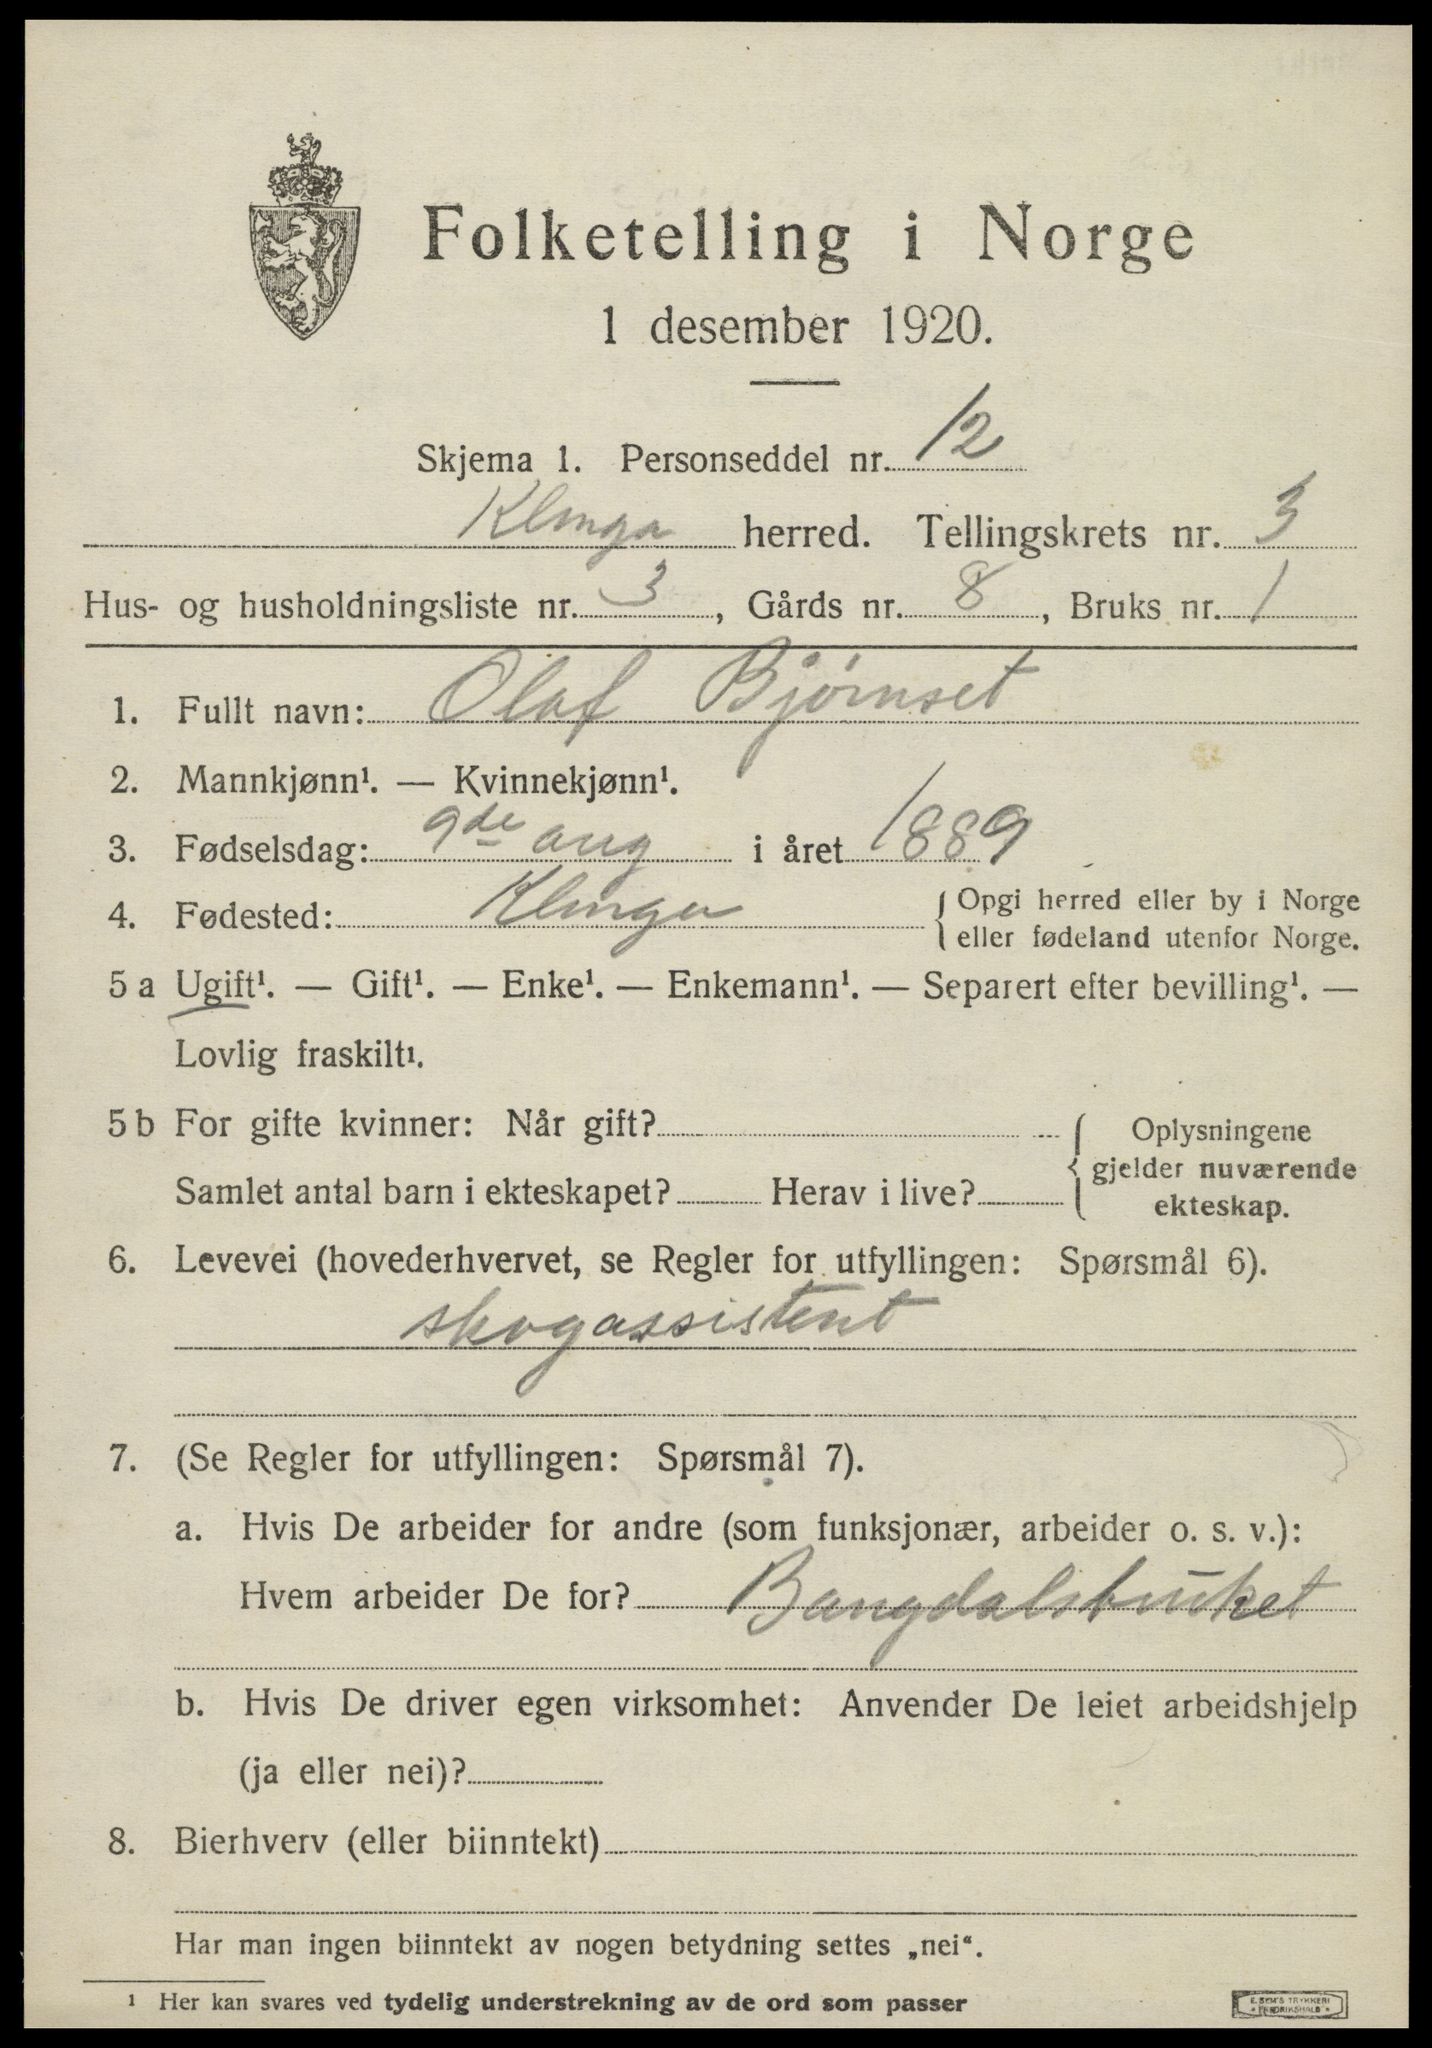 Folketelling i Norge
1 desember 1920.
Skjema 1. Personseddel nr. 12
Klinga herred. Tellingskrets nr. 3
Hus- og husholdningsliste nr. 3, Gårds nr. 8, Bruks nr. 1
1. Fullt navn: Olaf Bjørnset
2. Mannkjønn¹. — Kvinnekjønn¹.
3. Fødselsdag: 9de aug i året 1889
4. Fødested: Klinga { Opgi herred eller by i Norge
eller fødeland utenfor Norge.
5 a Ugift¹. — Gift¹. — Enke¹. — Enkemann¹. — Separert efter bevilling¹. —
Lovlig fraskilt¹.
5 b For gifte kvinner: Når gift?
Samlet antal barn i ekteskapet? Herav i live?
{ Oplysningene
gjelder nuværende
ekteskap.
6. Levevei (hovederhvervet, se Regler for utfyllingen: Spørsmål 6).
skogassistent
7. (Se Regler for utfyllingen: Spørsmål 7).
a. Hvis De arbeider for andre (som funksjonær, arbeider o. s. v.):
Hvem arbeider De for? Bangdalsbruket
b. Hvis De driver egen virksomhet: Anvender De leiet arbeidshjelp
(ja eller nei)?
8. Bierhverv (eller biinntekt)
Har man ingen biinntekt av nogen betydning settes „nei“.
¹ Her kan svares ved tydelig understrekning av de ord som passer
E. SEM'S TRYKKERI
* FREDRIKSHALD *